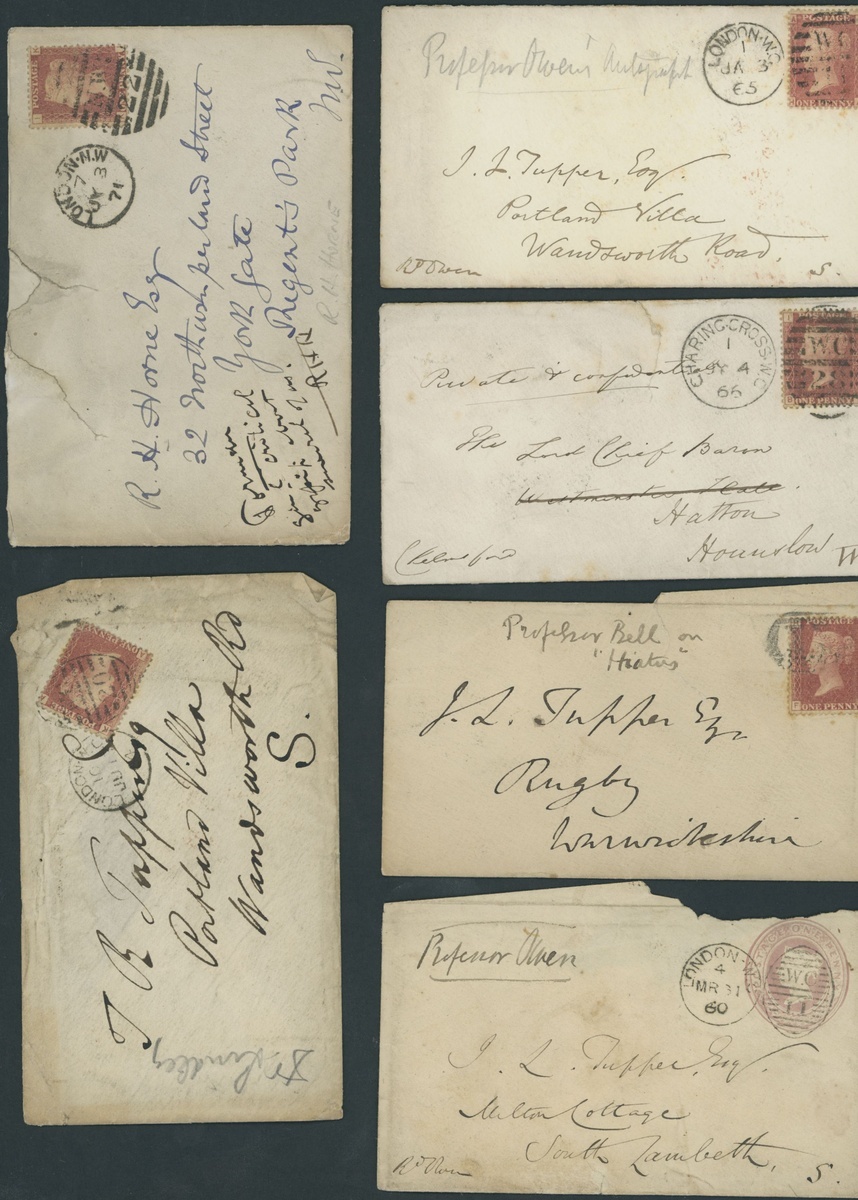 POSTAGE
LONDON·N.W
7
JY 3
71
R. H. Horne Esq
32 Northumperland Street
York Gate
Regent's Park
N.W.
R H Horne
critical
RHH
Professor Owen's Autograph
LONDON·W.C
1
JA 3
65
POSTAGE
WC
ONE PENNY
J. L. Tupper, Esq.
Portland Villa
Wandsworth Road.
Rd Owen
S.
Private & confidential
CHARING·CROSS·W.C
1
JY 4
66
POSTAGE
W.C
28
ONE PENNY
The Lord Chief Baron
Westminster Hall.
Hatton
Hounslow W
Chelmsford
LONDON
JU
T R Tupper Esq
Portland Villa
Wandsworth Rd
S.
Dr Lindley
Professor Bell on
"Hiatus"
POSTAGE
ONE PENNY
J. L. Tupper Esq
Rugby
Warwickshire
Professor Owen.
LONDON·W.C
4
MR 31
60
W.C
11
J. L. Tupper, Esq.
Milton Cottage
South Lambeth,
Rd Owen
S.